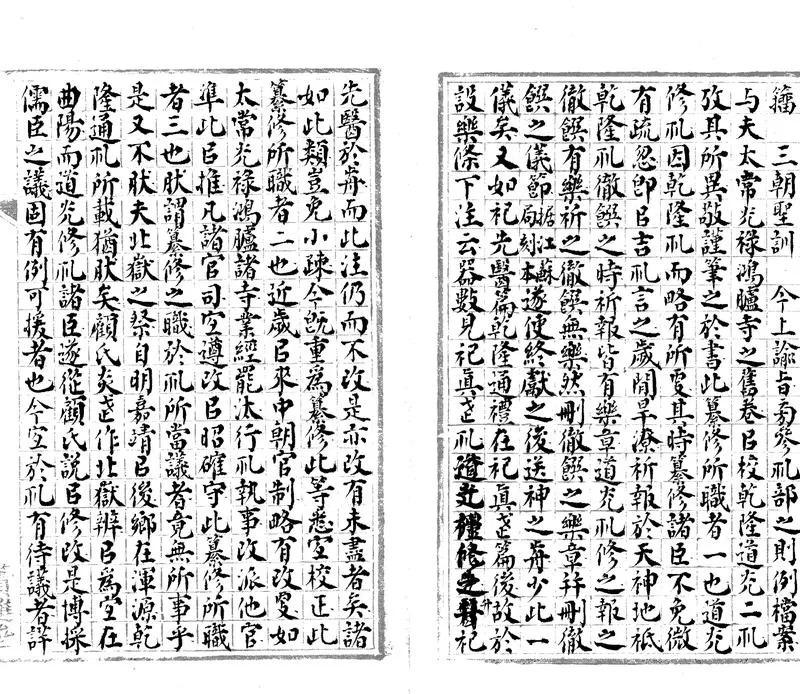 籓　三朝聖訓　今上諭旨旁參礼部之則例檔案
与夫太常光禄鴻臚寺之舊卷㠯校乾隆道光二礼
攷其所異敬謹筆之於書此纂修所職者一也道光
修礼因乾隆礼而略有所變其時纂修諸臣不免微
有疏忽即㠯吉礼言之歲閒旱潦祈報於天神地祇
乾隆礼徹饌之時祈報皆有樂章道光礼修之報之
徹饌有樂祈之徹饌無樂然刪徹饌之樂章并刪徹
饌之儀節据江蘇局刻本遂使終獻之後送神之前少此一
儀矣又如祀先醫篇乾隆通禮在祀真武篇後故於
設樂條下注云器數見祀真武礼道光禮修之升祀
先醫於前而此注仍而不改是亦改有未盡者矣諸
如此類豈免小疎今旣重爲纂修此等悉宜校正此
纂修所職者二也近歲㠯來中朝官制略有改變如
太常光禄鴻臚諸寺業經罷汰行礼執事改派他官
準此㠯推凡諸官司宜遵改㠯昭確守此纂修所職
者三也肰謂纂修之職於礼所當議者竟無所事乎
是又不肰夫北嶽之祭自明嘉靖㠯後鄉在渾源乾
隆通礼所載猶肰矣顧氏炎武作北嶽辨㠯爲宜在
曲陽而道光修礼諸臣遂從顧氏說㠯修改是博採
儒臣之議固有例可援者也今宜於礼有待議者詳